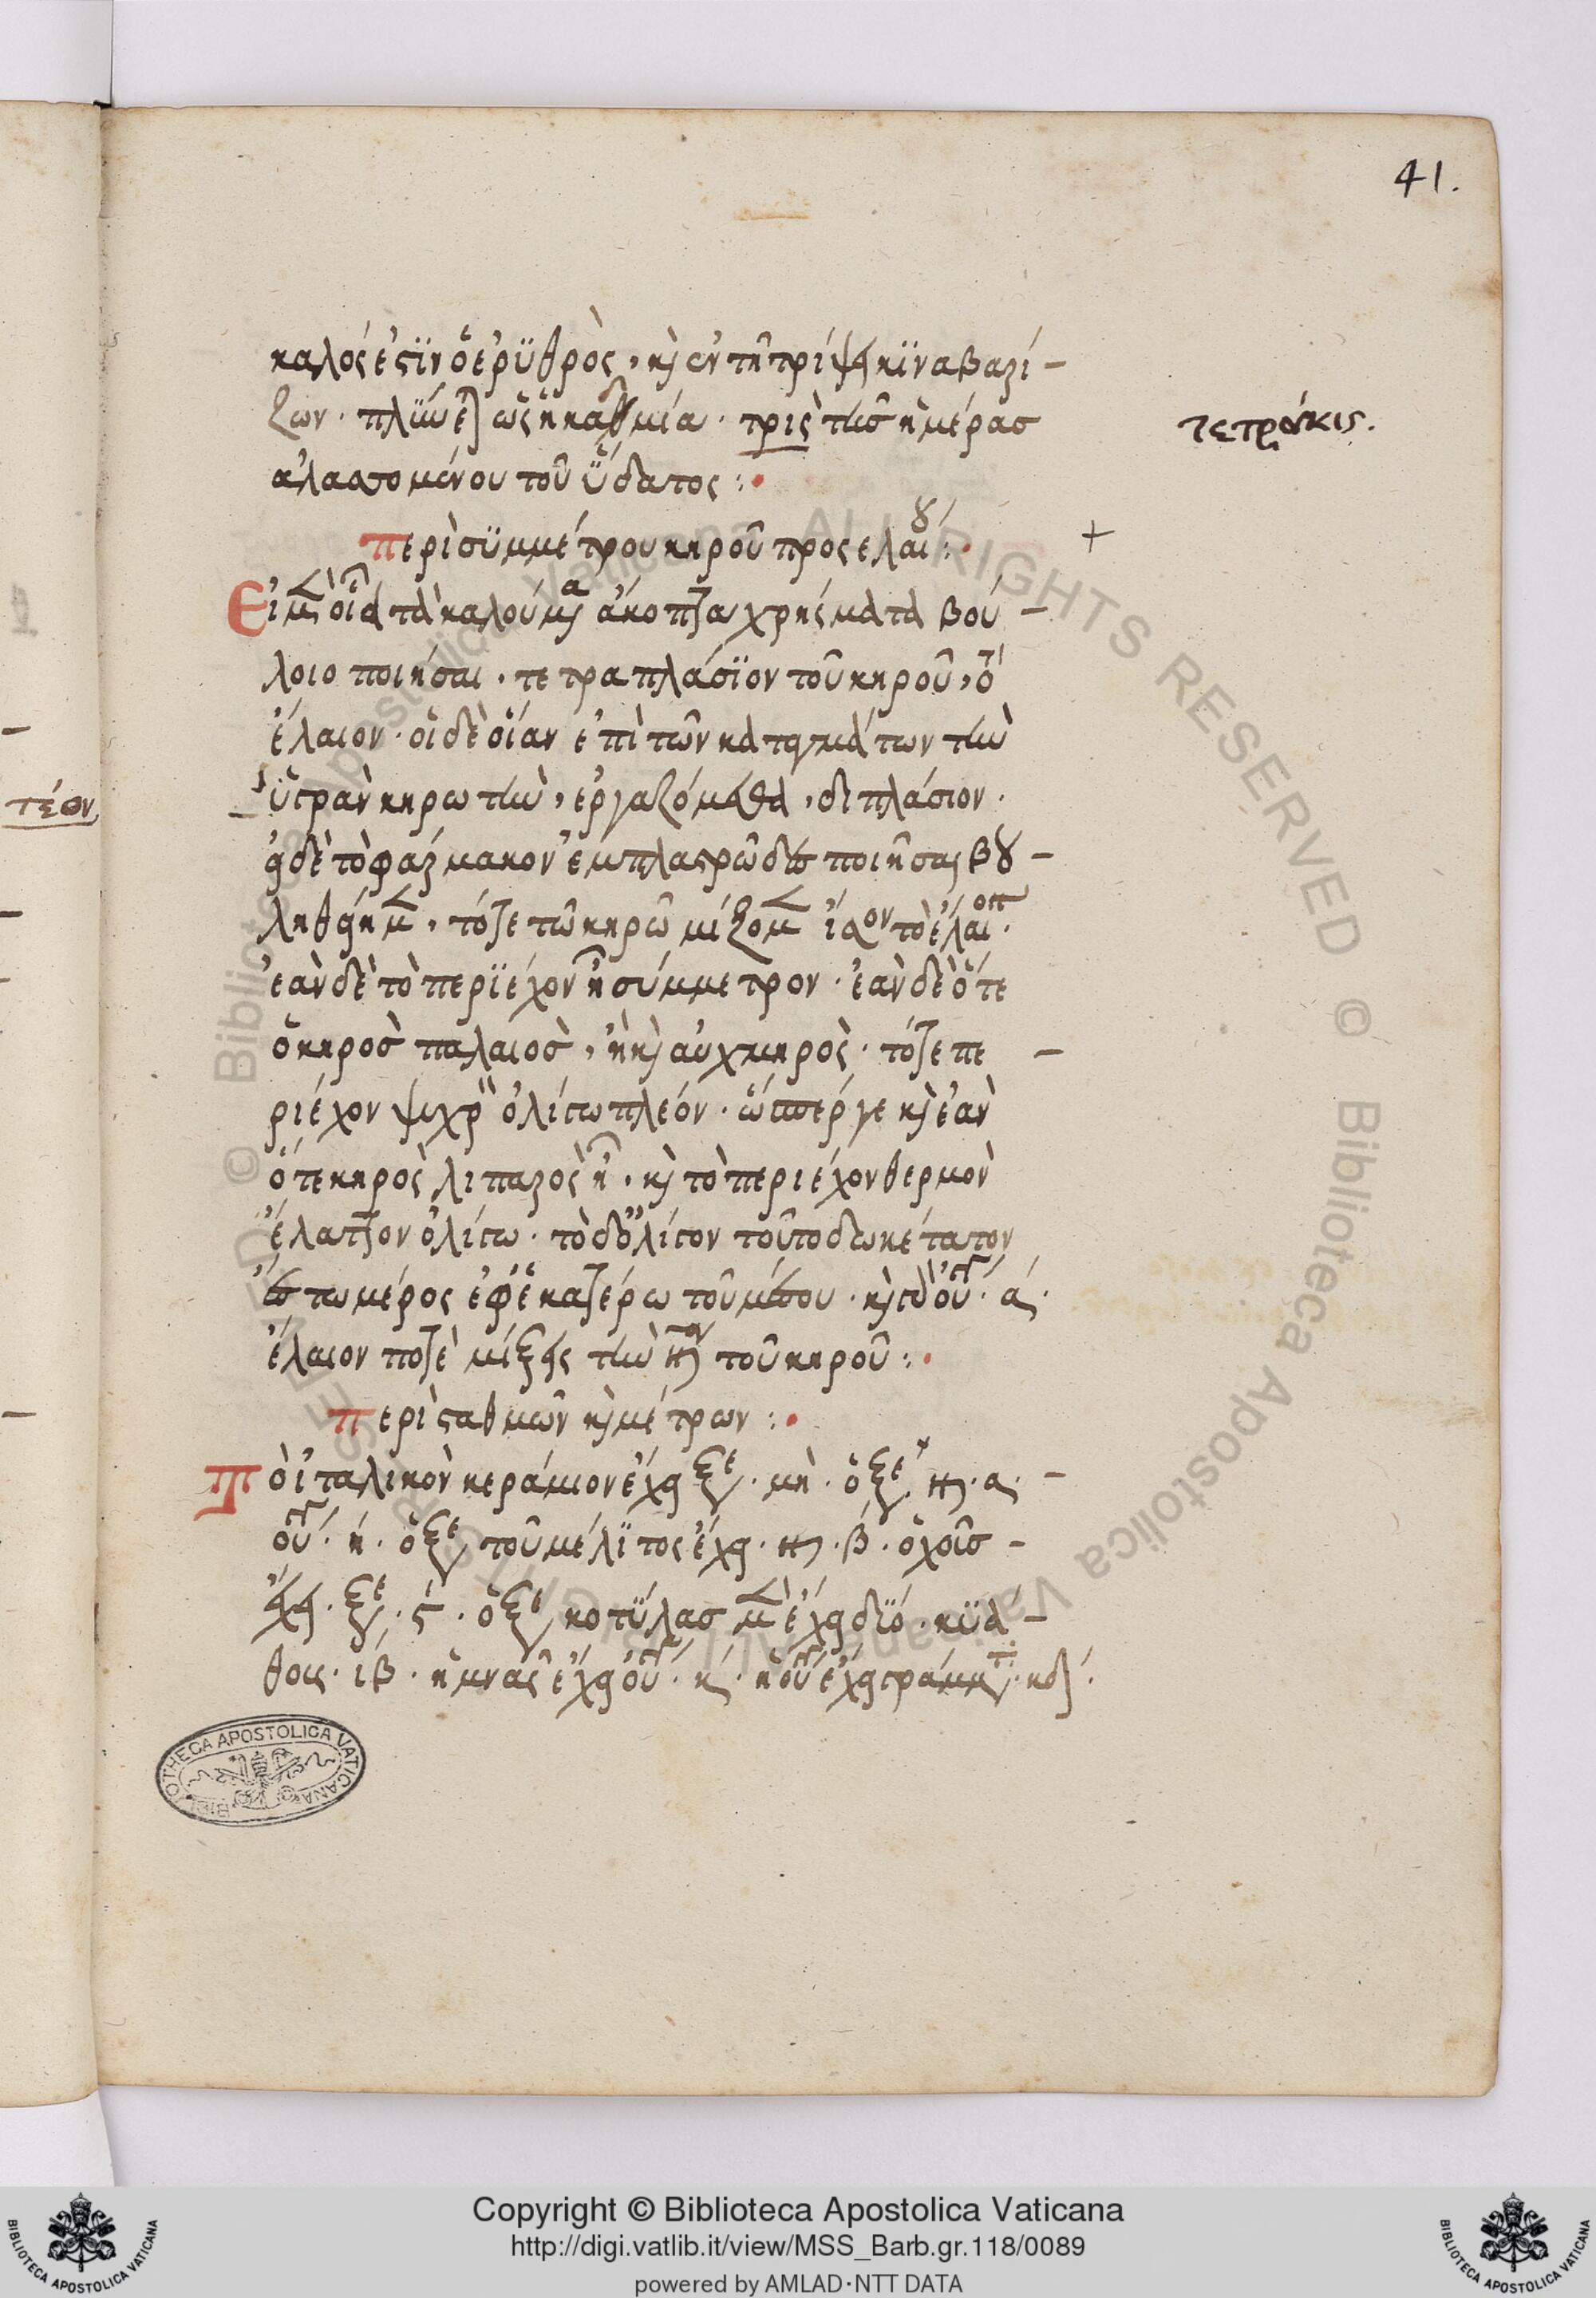 41.
καλός ἐστϊν ὁ ἐρϋθρὸς, κὶ ἐν τῆ τρίψει κϊναβαρί-
ζων. πλΰνε] ὡς ἡ καθμία. τρις τῆς ἡμέρασ
τετράκις.
ἀλασσομένου τοῦ ὕδατος:·
περὶ σϋμμέτρου κηροῦ προς ελαίου:·
+
Εἰ μὲν οἷα τὰ καλούμενα ἄκοπτα χρήσματα βού-
λοιο ποιήσαι. τετραπλάσϊον τοῦ κηροῦ, τὸ
ἔλαιον. εἰ δὲ οἵαν ἐπὶ τῶν καταγμάτων τὴν
ὑγρὰν κηρωτὴν, ἐργαζόμεθα, διπλάσιον.
εἰ δὲ τὸ φάρμακον ἐμπλαστρῶδες ποιῆσαι βου-
ληθείημεν, τότε τῶ κηρῶ μίξομεν ἴσον τὸ ἔλαιον.
ἐὰν δὲ τὸ περϊέχον ἦ σύμμετρον. ἐὰν δὲ ὅτε
ὁ κηροσ παλαιοσ, ἢ κὶ αὐχμηρὸς. τότε πε
ριέχον ψυχρὸν ὀλίγω πλεόν. ὥσπερ γε κὶ ἐὰν
ὅτε κηρὸς λιπαρὸς ἦ, κὶ τὸ περιέχον θερμὸν
ἔλαττον ὀλίγω. τὸ δ' ὀλίγον τοῦτο δωκέτατον
ἔστω μέρος ἐφ' ἑκατέρω τοῦ μέσου. κὶ
ἔλαιον ποτὲ μίξεις τὴν τοῦ κηροῦ:·
περὶ σταθμῶν κὶ μέτρων:·
Τὸ ἰταλικὸν κεράμιον ἔχει ξε. μη. ὁ ξε λι. α.
οὐγ. η. ὁ ξε τοῦ μέλϊτος ἔχει. λι. β. ὁ χοῦσ-
ἔχει. ξε. ς. ὁ ξε κοτΰλασ μὲν ἔχει δϊό. κϋά-
θοις. ιβ. ἡ μνᾶς ἔχει οὐγ. κ. ἡ οὐγ ἔχει γράμμ. κδ.
τέον
BIBLIOTHECA APOSTOLICA VATICANA
© Biblioteca Apostolica Vaticana ALL RIGHTS RESERVED
Copyright © Biblioteca Apostolica Vaticana
http://digi.vatlib.it/view/MSS_Barb.gr.118/0089
powered by AMLAD·NTT DATA